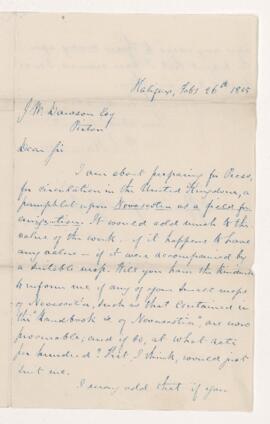 Halifax, Feby 26th 1855
J. W. Dawson Esq
Pictou
Dear Sir
I am about preparing for Press,
for circulation in the United Kingdom, a
pamphlet upon Novascotia as a field for
emigration. It would add much to the
value of the work - if it happens to have
any value - if it were accompanied by
a suitable map. Will you have the kindness
to inform me if any of your small maps
of Novascotia, such as that contained in
the "Handbook of Novascotia", are now
procurable; and if so, at what rate
per hundred? That I think, would just
suit me.
I may add that if you